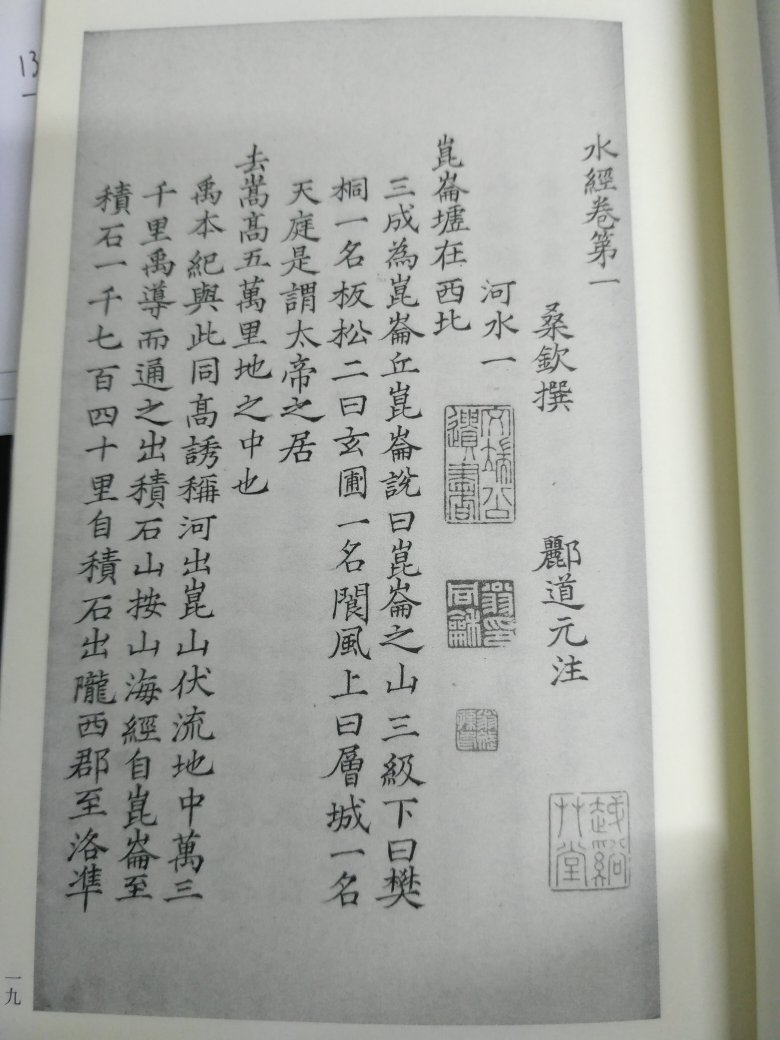 水經卷第一
桑欽撰 酈道元注
河水一
崑崙墟在西北
三成為崑崙丘崑崙說曰崑崙之山三級下曰樊
桐一名板松二曰玄圃一名閬風上曰層城一名
天庭是謂太帝之居
去嵩髙五萬里地之中也
禹本紀與此同髙誘稱河出崑山伏流地中萬三
千里禹導而通之出積石山按山海經自崑崙至
積石一千七百四十里自積石出隴西郡至洛準
文端公遺書
翁同龢印
越谿艸堂
一九
13